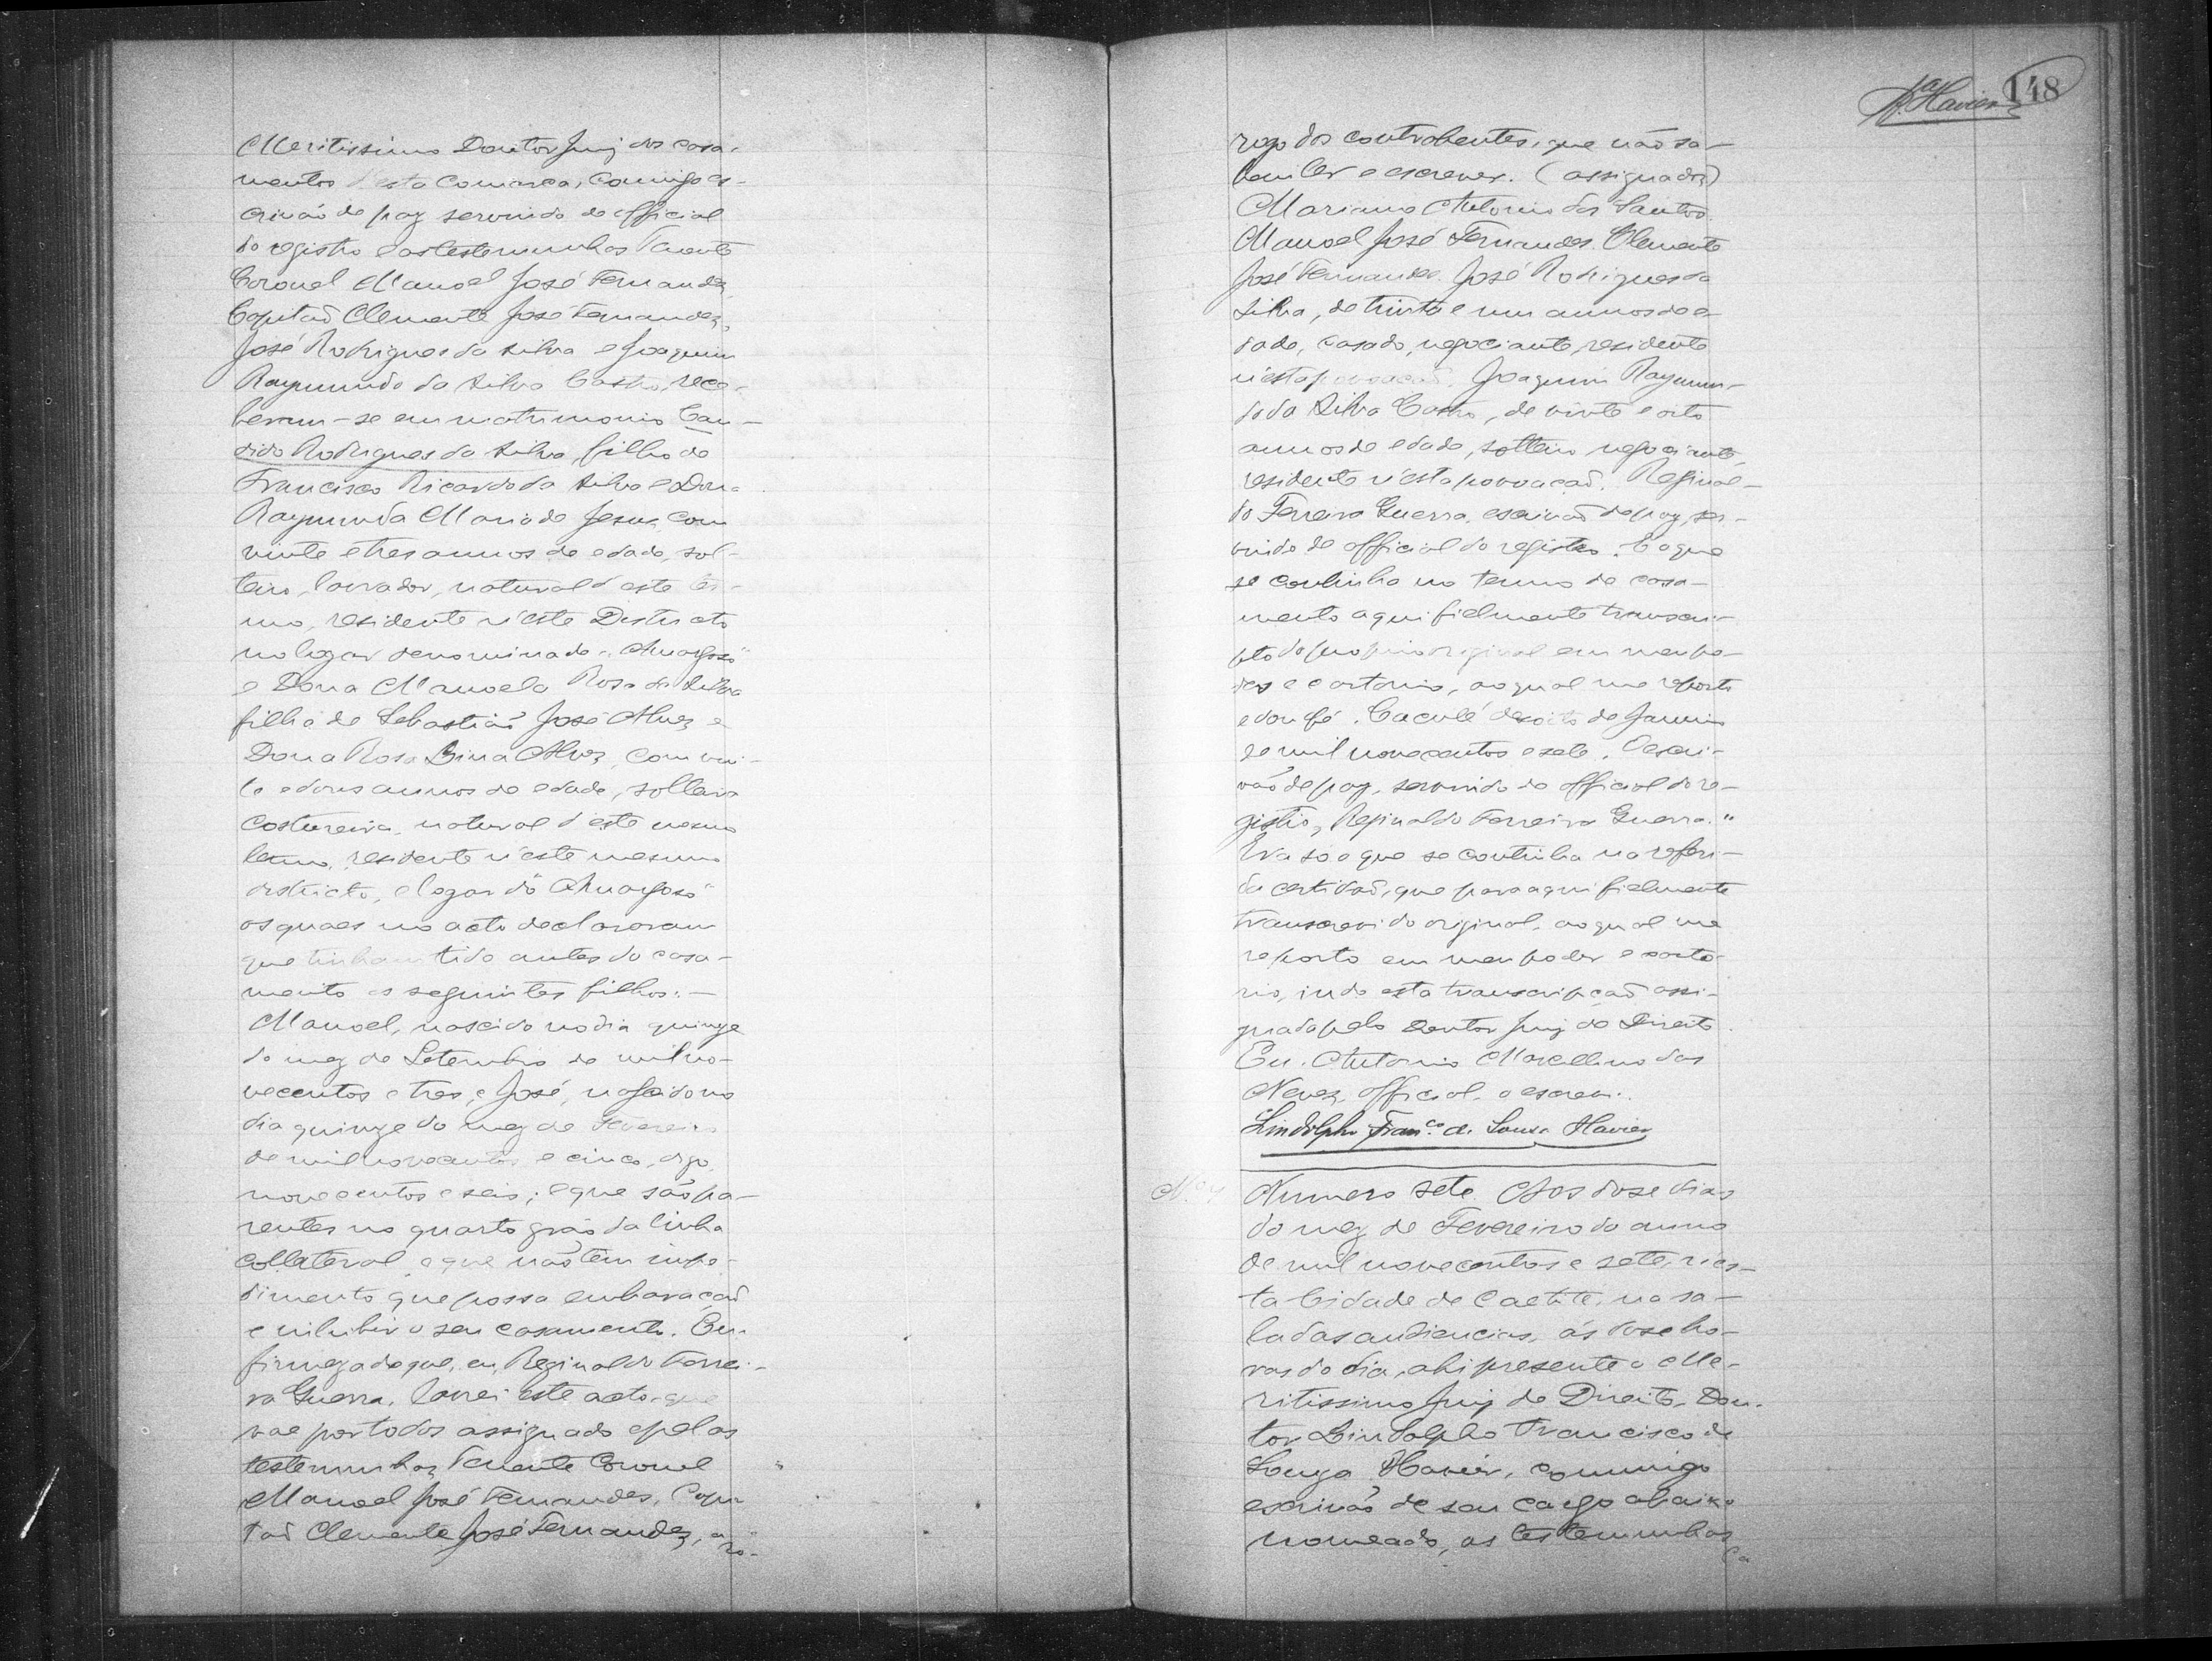 Meritissimo Doutor Juiz dos casa-
mentos desta Comarca, comigo es-
crivão de paz servindo de official
do registro e as testemunhas Tenente
Coronel Manoel José Fernandes,
Capitaõ Clemente José Fernandes,
José Rodrigues da Silva e Joaquim
Raymundo da Silva Castro, rece-
beram-se em matrimonio Can-
dido Rodrigues da Silva, filho de
Francisco Ricardo da Silva e Dona
Raymunda Maria de Jesus, com
vinte e tres annos de edade, sol-
teiro, lavrador, natural d'este ter-
mo, residente n'este Districto
no logar denominado "Amargoso"
e Dona Manoela Rosa da Silva
filha de Sebastiaõ José Alves e
Dona Rosa Lina Alves, com vin-
te e dous annos de edade, solteira
costureira, natural d'este mesmo
termo, residente n'este mesmo
districto, e logar do "Amargoso"
os quaes no acto declararam
que tinham tido antes do casa-
mento os seguintes filhos:-
Manoel, nascido no dia quinze
do mez de Setembro de mil no-
vecentos e tres, e José, nascido no
dia quinze do mez de Fevereiro
de mil novecentos e cinco, digo,
novecentos e seis; e que são pa-
rentes no quarto gráo da linha
collateral, e que não têm impe-
dimento que possa embaraçar
e inhibir o seu casamento. Em
firmeza do que, eu, Reginaldo Ferrei-
ra Guerra, lavrei este acto, que
vae por todos assignado e pelas
testemunhas Tenente Coronel
Manoel José Fernandes, Capi-
taõ Clemente José Fernandes, a
ro-
148
Xavier
rogo dos contrahentes, que não sa-
bem ler e escrever. (assignados)
Mariano Antonio dos Santos.
Manoel José Fernandes. Clemente
José Fernandes. José Rodrigues da
Silva, de trinta e um annos de e-
dade, casado, negociante, residente
n'esta povoaçaõ. Joaquim Raymun-
do da Silva Castro, de vinte e oito
annos de edade, solteiro, negociante,
residente n'esta povoaçaõ. Reginal-
do Ferreira Guerra, escrivaõ de paz, ser-
vindo de official do registro. E o que
se continha no termo de casa-
mento aqui fielmente transcri-
pto do proprio original em meu po-
der e cartorio, ao qual me reporto
e dou fé. Caculé dezoito de Janeiro
de mil novecentos e sete. O escri-
vão de paz, servindo de official do re-
gistro, Reginaldo Ferreira Guerra."
Era só o que se continha na referi-
da certidaõ, que para aqui fielmente
transcrevi do original, ao qual me
reporto em meu poder e carto-
rio, indo esta transcripçaõ assi-
gnada pelo Doutor Juiz de Direito.
Eu, Antonio Marcellino das
Neves, official, o escrevi.
Lindolpho Fran.co de Sousa Xavier
N.º 7 Numero sete. Aos dose dias
do mez de Fevereiro do anno
de mil novecentos e sete, n'es-
ta Cidade de Caetité, na sa-
la das audiencias, ás dose ho-
ras do dia, ahi presente o Me-
ritissimo Juiz de Direito, Dou-
tor Lindolpho Francisco de
Souza Xavier, commigo
escrivaõ de seu cargo abaixo
nomeado, as testemunhas
Ca